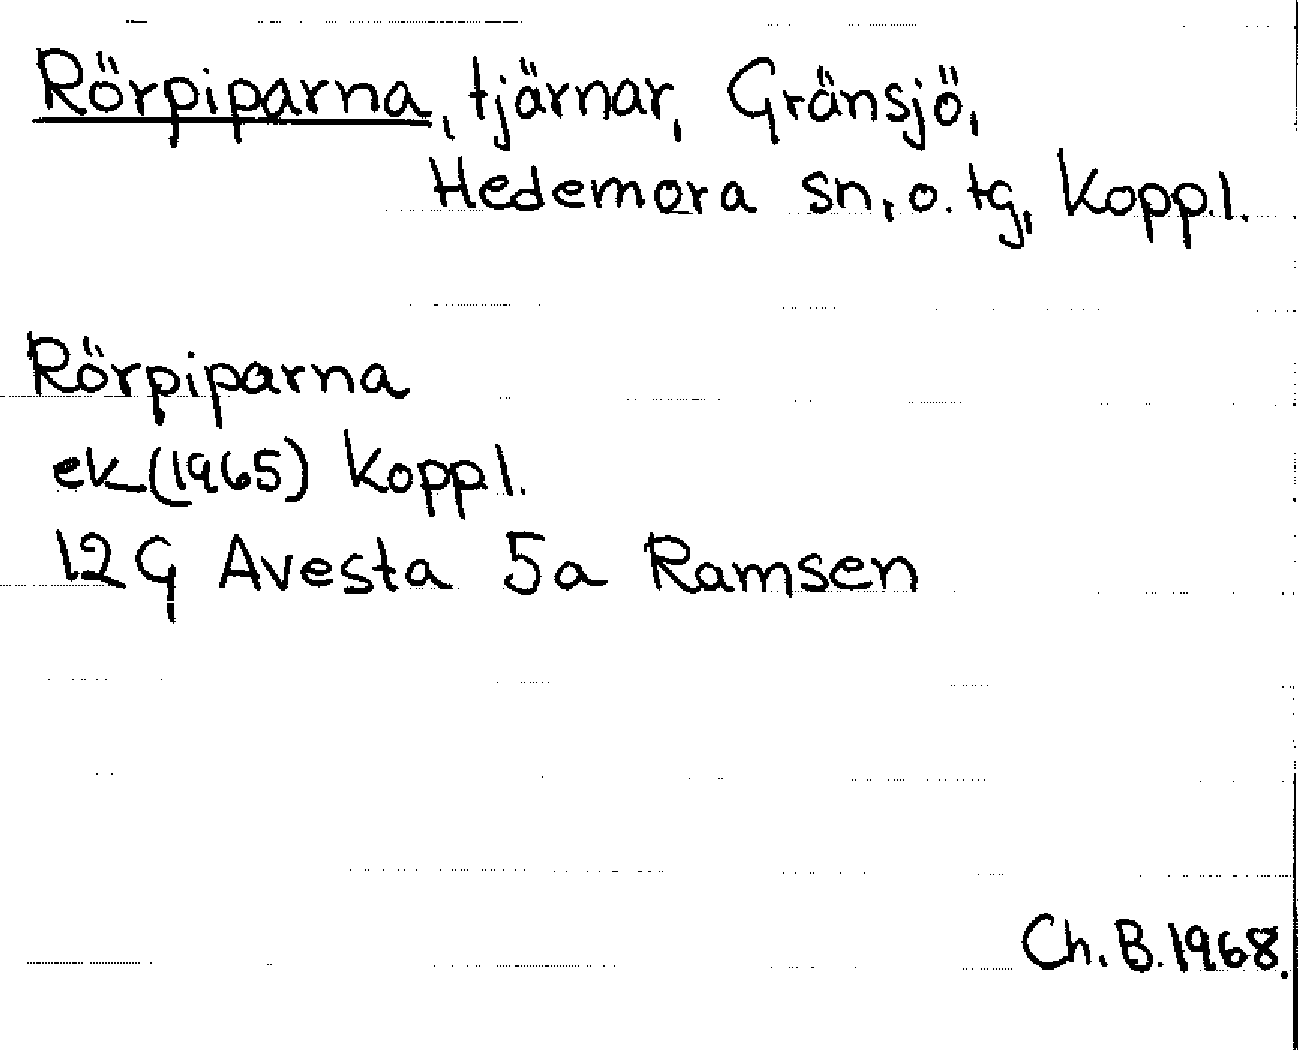 Rörpiparna, tjärnar, Gränsjö,
Hedemora sn, o. tg, Koppl.
Rörpiparna
ek (1965) Koppl.
12G Avesta 5a Ramsen
Ch. B. 1968.